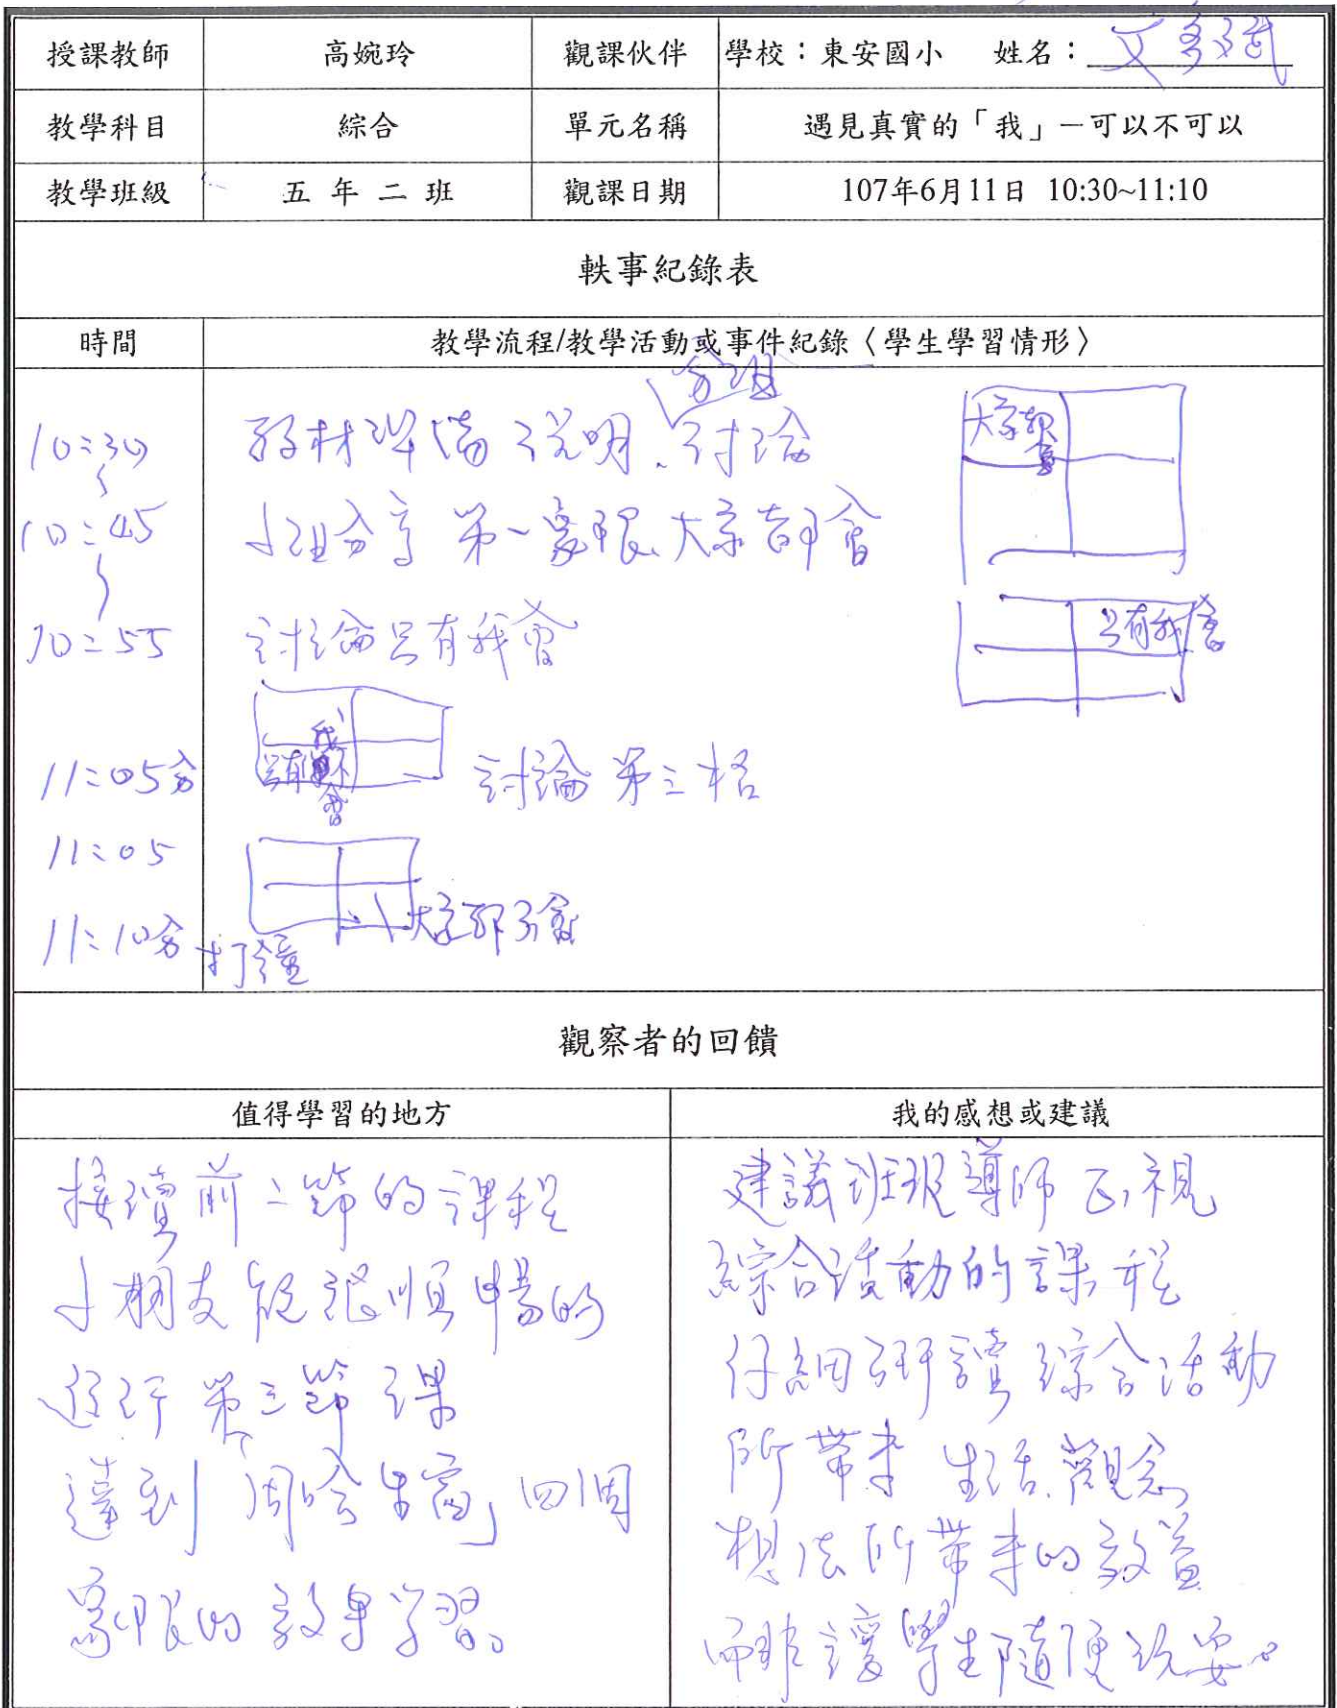 授課教師 高婉玲 觀課伙伴 學校：東安國小 姓名：
教學科目 綜合 單元名稱 遇見真實的「我」－可以不可以
教學班級 五 年 二 班 觀課日期 107年6月11日 10:30~11:10
軼事紀錄表
時間 教學流程/教學活動或事件紀錄〈學生學習情形〉
分組
10:30 教材準備 說明、討論
大家都會
10:45 小組分享 第一象限、大家都會
10:55 討論只有我會
只有我會
11:05分 只有我不會 討論 第三格
11:05
大家都不會
11:10分 打鐘
觀察者的回饋
值得學習的地方 我的感想或建議
接續前二節的課程
小朋友能很順暢的
進行 第三節 課
達到 四個
象限的 效果學習。
建議班級導師 正視
綜合活動的課程
仔細研讀 綜合活動
所帶來 生活、觀念
想法所帶來的效益
而非讓學生隨便玩耍。